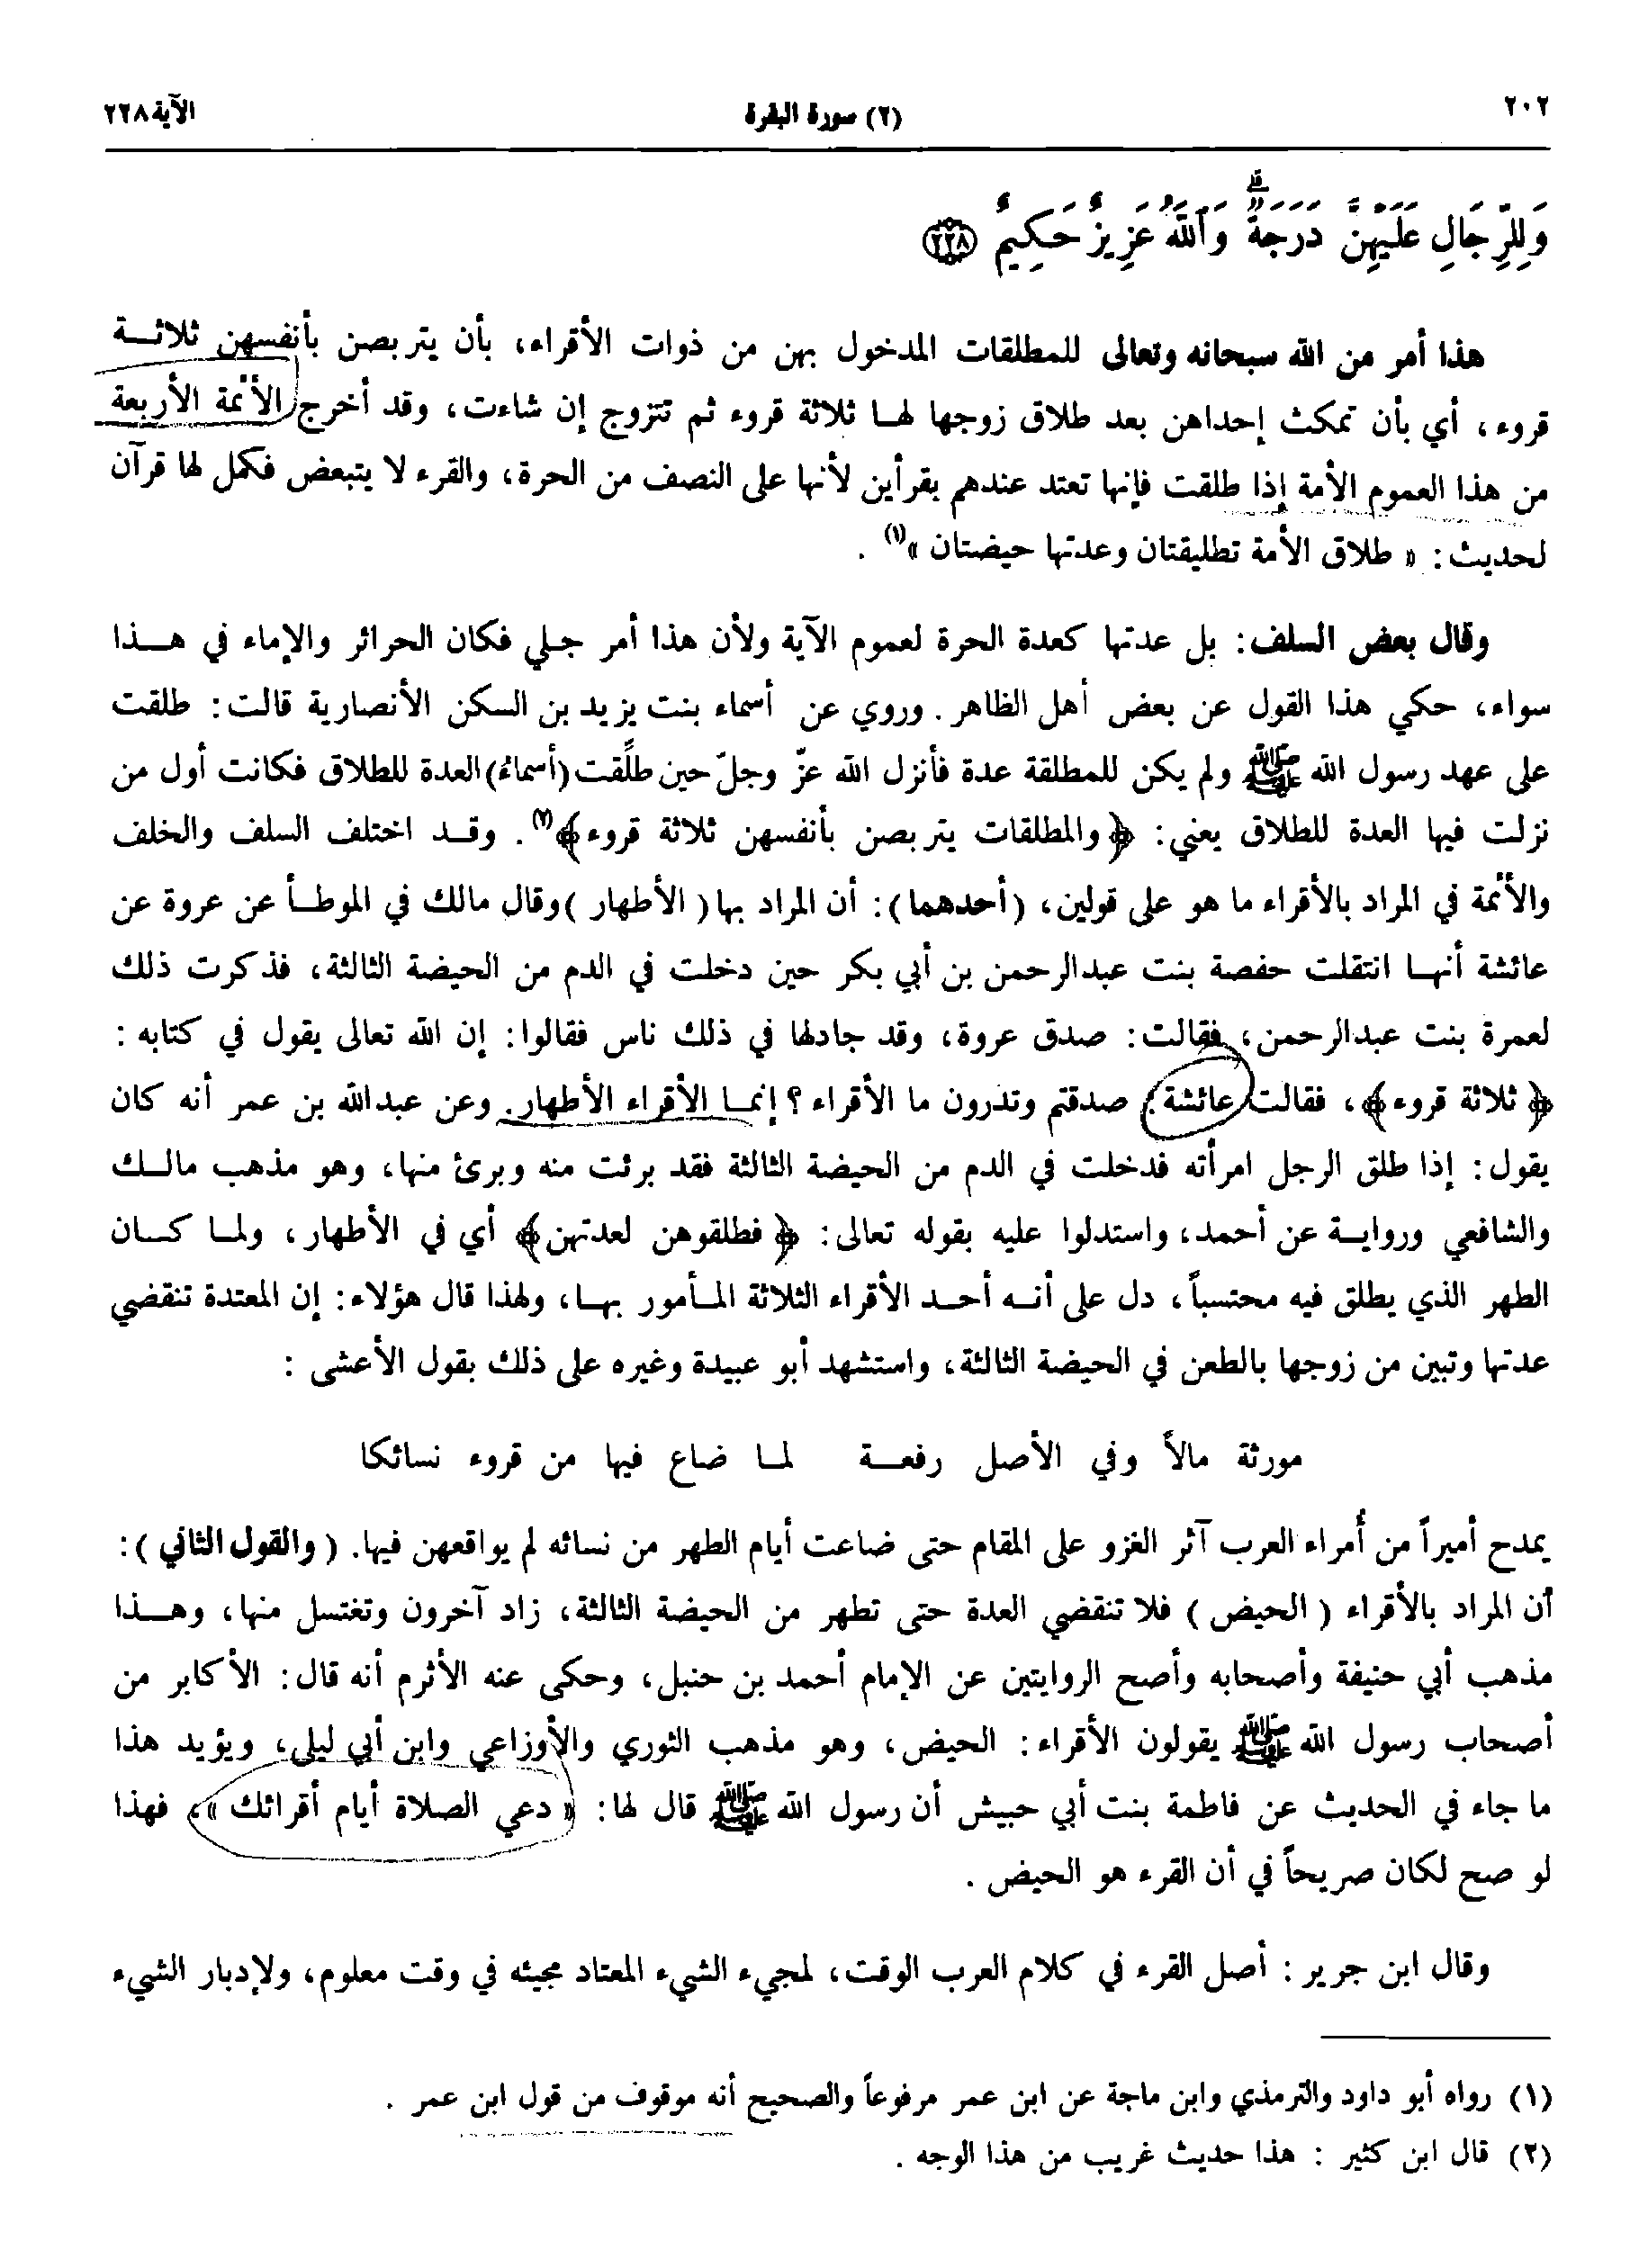 ٢٠٢
(٢) سورة البقرة
الآية ٢٢٨
وَلِلرِّجَالِ عَلَيْهِنَّ دَرَجَةٌ ۗ وَٱللَّهُ عَزِيزٌ حَكِيمٌ ٢٢٨
هذا أمر من الله سبحانه وتعالى للمطلقات المدخول بهن من ذوات الأقراء، بأن يتربصن بأنفسهن ثلاثة
قروء، أي بأن تمكث إحداهن بعد طلاق زوجها لها ثلاثة قروء ثم تتزوج إن شاءت، وقد أخرج الأئمة الأربعة
من هذا العموم الأمة إذا طلقت فإنها تعتد عندهم بقرأين لأنها على النصف من الحرة، والقرء لا يتبعض فكمل لها قرآن
لحديث: « طلاق الأمة تطليقتان وعدتها حيضتان »(١) .
وقال بعض السلف: بل عدتها كعدة الحرة لعموم الآية ولأن هذا أمر جلي فكان الحرائر والإماء في هذا
سواء، حكي هذا القول عن بعض أهل الظاهر. وروي عن أسماء بنت يزيد بن السكن الأنصارية قالت: طلقت
على عهد رسول الله ﷺ ولم يكن للمطلقة عدة فأنزل الله عزّ وجلّ حين طلِّقت (أسماء) العدة للطلاق فكانت أول من
نزلت فيها العدة للطلاق يعني: ﴿والمطلقات يتربصن بأنفسهن ثلاثة قروء﴾(٢). وقد اختلف السلف والخلف
والأئمة في المراد بالأقراء ما هو على قولين، (أحدهما): أن المراد بها (الأطهار) وقال مالك في الموطأ عن عروة عن
عائشة أنها انتقلت حفصة بنت عبدالرحمن بن أبي بكر حين دخلت في الدم من الحيضة الثالثة، فذكرت ذلك
لعمرة بنت عبدالرحمن، فقالت: صدق عروة، وقد جادلها في ذلك ناس فقالوا: إن الله تعالى يقول في كتابه :
﴿ثلاثة قروء﴾، فقالت عائشة: صدقتم وتدرون ما الأقراء ؟ إنما الأقراء الأطهار. وعن عبدالله بن عمر أنه كان
يقول: إذا طلق الرجل امرأته فدخلت في الدم من الحيضة الثالثة فقد برئت منه وبرئ منها، وهو مذهب مالك
والشافعي ورواية عن أحمد، واستدلوا عليه بقوله تعالى: ﴿فطلقوهن لعدتهن﴾ أي في الأطهار، ولما كان
الطهر الذي يطلق فيه محتسباً، دل على أنه أحد الأقراء الثلاثة المأمور بها، ولهذا قال هؤلاء: إن المعتدة تنقضي
عدتها وتبين من زوجها بالطعن في الحيضة الثالثة، واستشهد أبو عبيدة وغيره على ذلك بقول الأعشى :
مورثة مالاً وفي الأصل رفعة لما ضاع فيها من قروء نسائكا
يمدح أميراً من أُمراء العرب آثر الغزو على المقام حتى ضاعت أيام الطهر من نسائه لم يواقعهن فيها. (والقول الثاني):
أن المراد بالأقراء (الحيض) فلا تنقضي العدة حتى تطهر من الحيضة الثالثة، زاد آخرون وتغتسل منها، وهذا
مذهب أبي حنيفة وأصحابه وأصح الروايتين عن الإمام أحمد بن حنبل، وحكى عنه الأثرم أنه قال: الأكابر من
أصحاب رسول الله ﷺ يقولون الأقراء: الحيض، وهو مذهب الثوري والأوزاعي وابن أبي ليلى، ويؤيد هذا
ما جاء في الحديث عن فاطمة بنت أبي حبيش أن رسول الله ﷺ قال لها: « دعي الصلاة أيام أقرائك »، فهذا
لو صح لكان صريحاً في أن القرء هو الحيض .
وقال ابن جرير : أصل القرء في كلام العرب الوقت، لمجيء الشيء المعتاد مجيئه في وقت معلوم، ولإدبار الشيء
(١) رواه أبو داود والترمذي وابن ماجة عن ابن عمر مرفوعاً والصحيح أنه موقوف من قول ابن عمر .
(٢) قال ابن كثير : هذا حديث غريب من هذا الوجه .